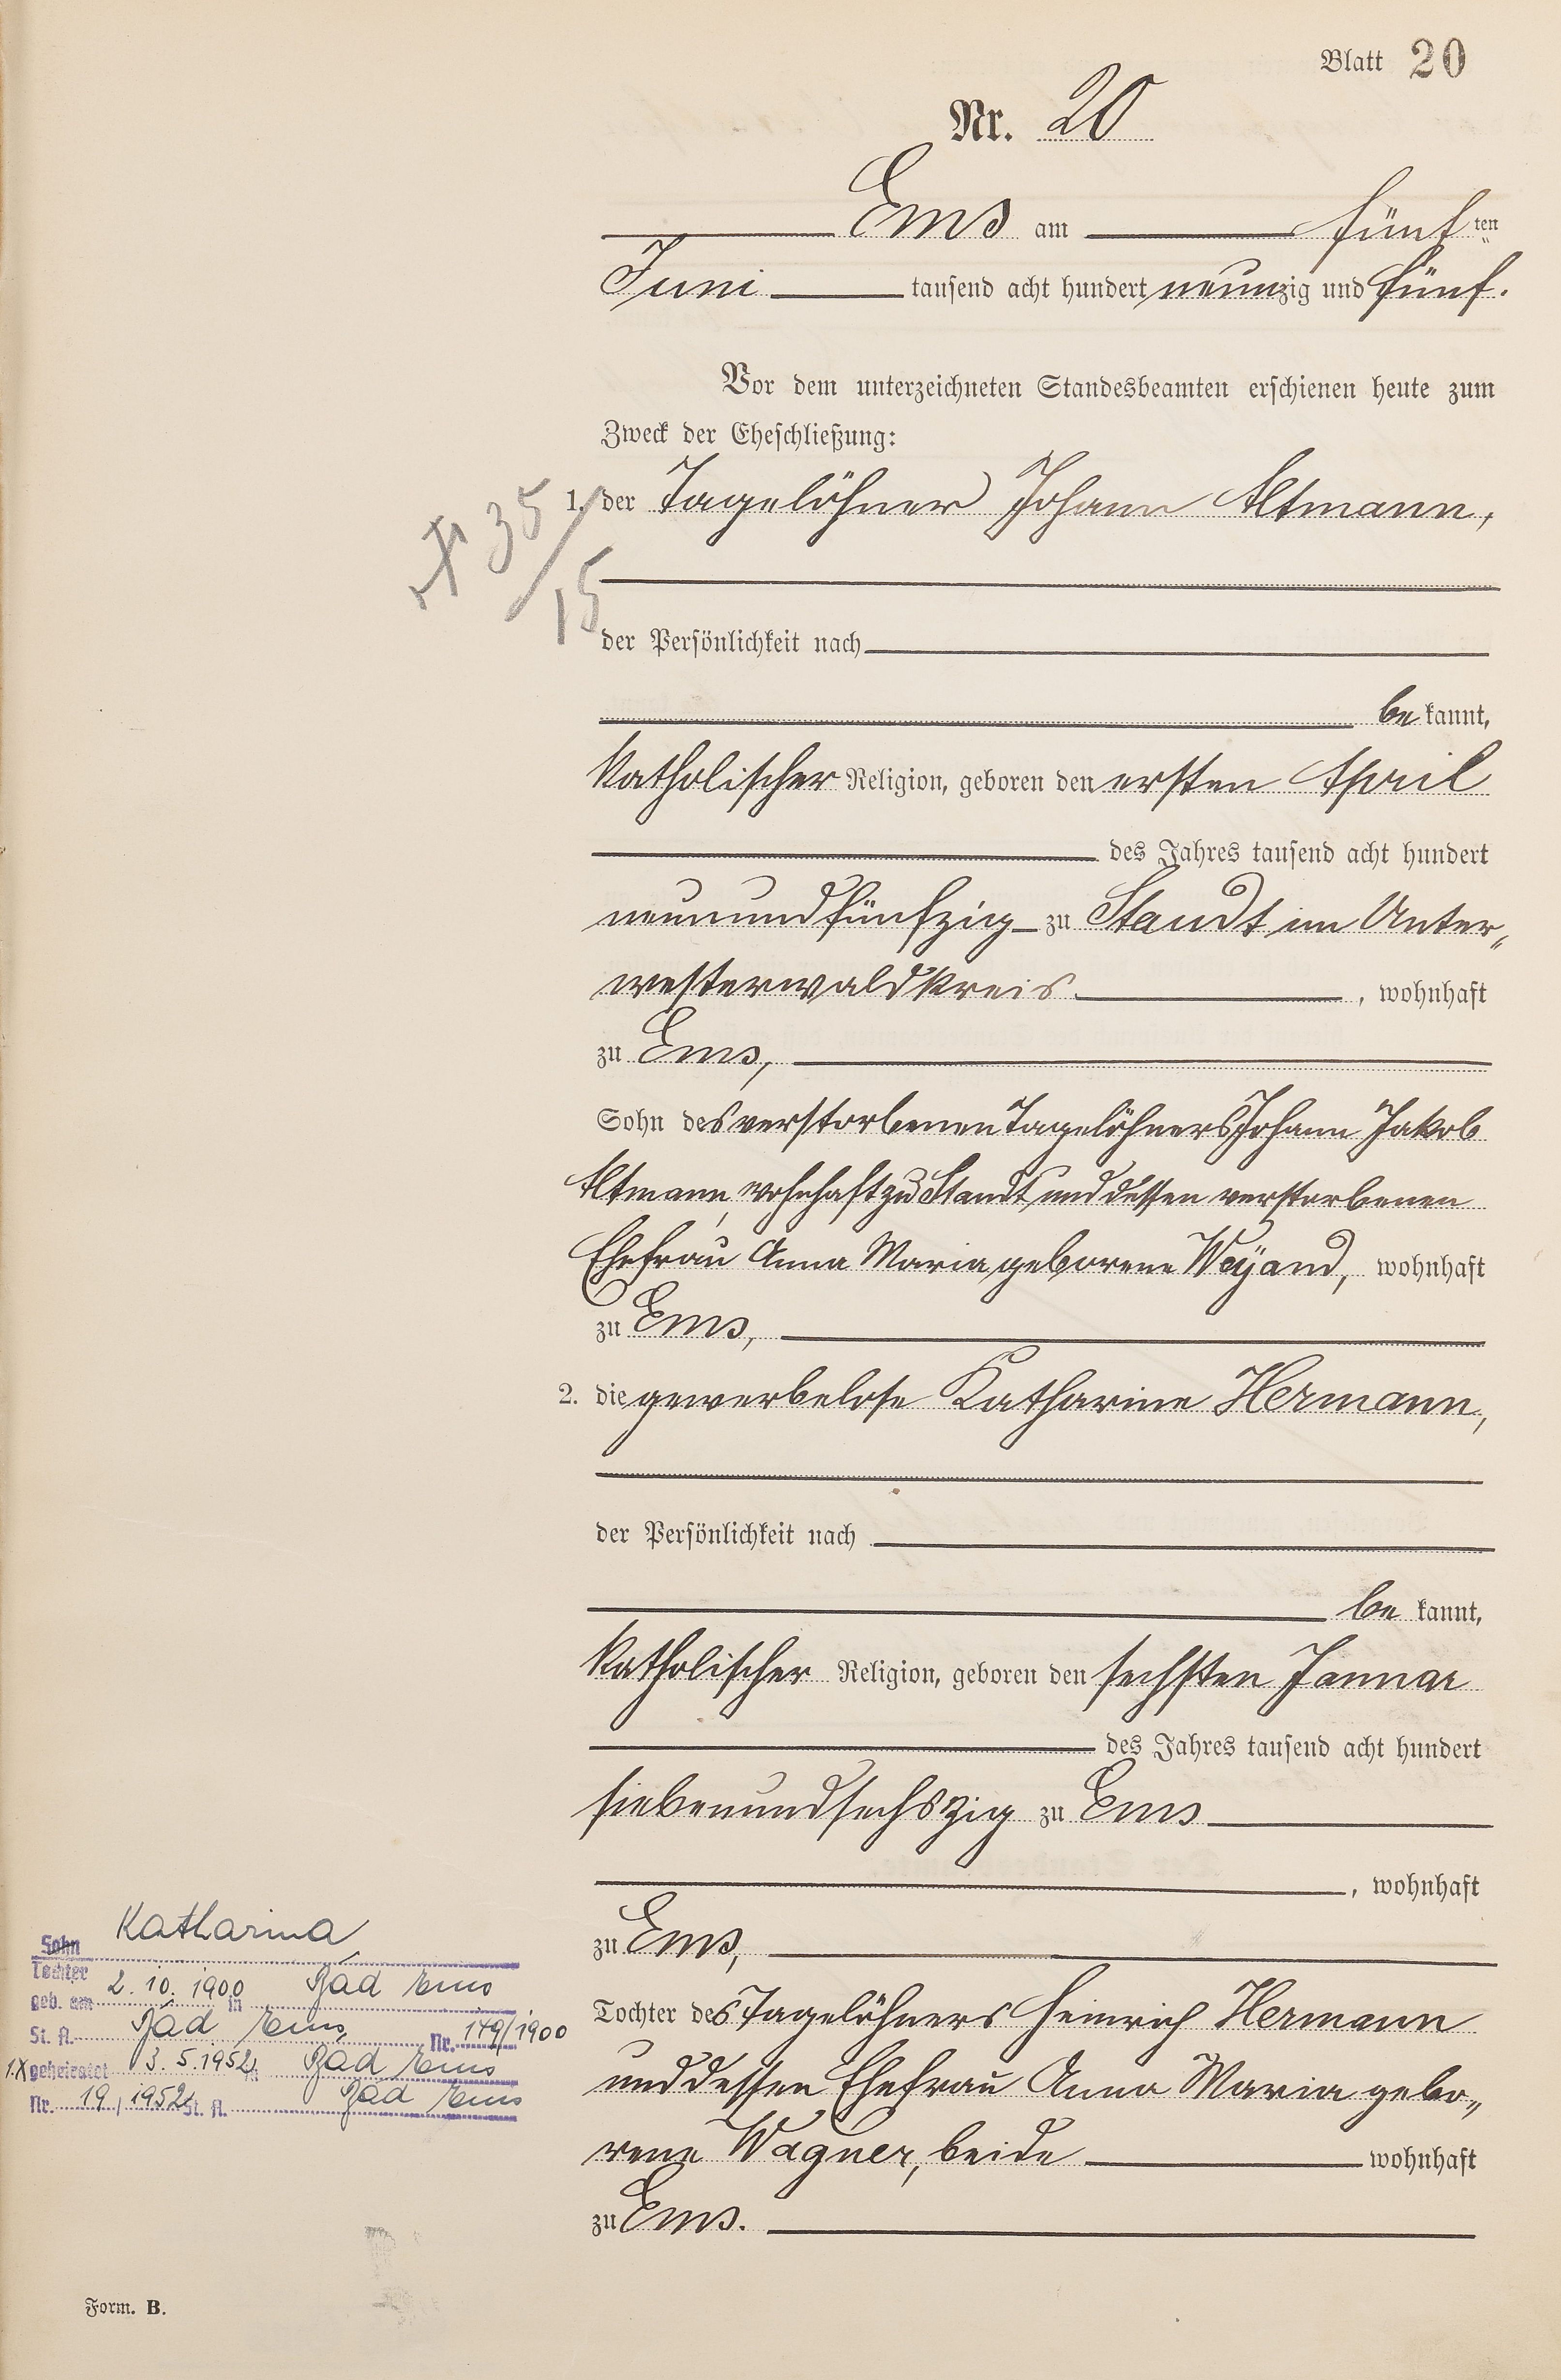 Blatt 20
Nr. 20
Ems am fünf ten
Juni tausend acht hundert neunzig und fünf.
Vor dem unterzeichneten Standesbeamten erschienen heute zum
Zweck der Eheschließung:
1. der Tagelöhner Johann Altmann,
35/15
der Persönlichkeit nach
be kannt,
katholischer Religion, geboren den ersten April
des Jahres tausend acht hundert
neunundfünfzig zu Staudt im Unter„
westerwaldkreis, wohnhaft
zu Ems,
Sohn des verstorbenen Tagelöhners Johann Jakob
Altmann, wohnhaft zu Staudt und dessen verstorbenen
Ehefrau Anna Maria geborene Weÿand, wohnhaft
zu Ems,
2. die gewerbelose Katharine Hermann,
der Persönlichkeit nach
be kannt,
katholischer Religion, geboren den sechsten Januar
des Jahres tausend acht hundert
siebenundsechszig zu Ems
, wohnhaft
zu Ems,
Tochter des Tagelöhners Heinrich Hermann
und dessen Ehefrau Anna Maria gebo„
rene Wagner, beide wohnhaft
zu Ems.
Katharina
Sohn
Tochter
geb. am 2. 10. 1900 in Bad Ems
St. A. Bad Ems, Nr. 149/1900
1.X geheiratet 3. 5. 1952 in Bad Ems
Nr. 19, 1952 St. A. Bad Ems
Form. B.